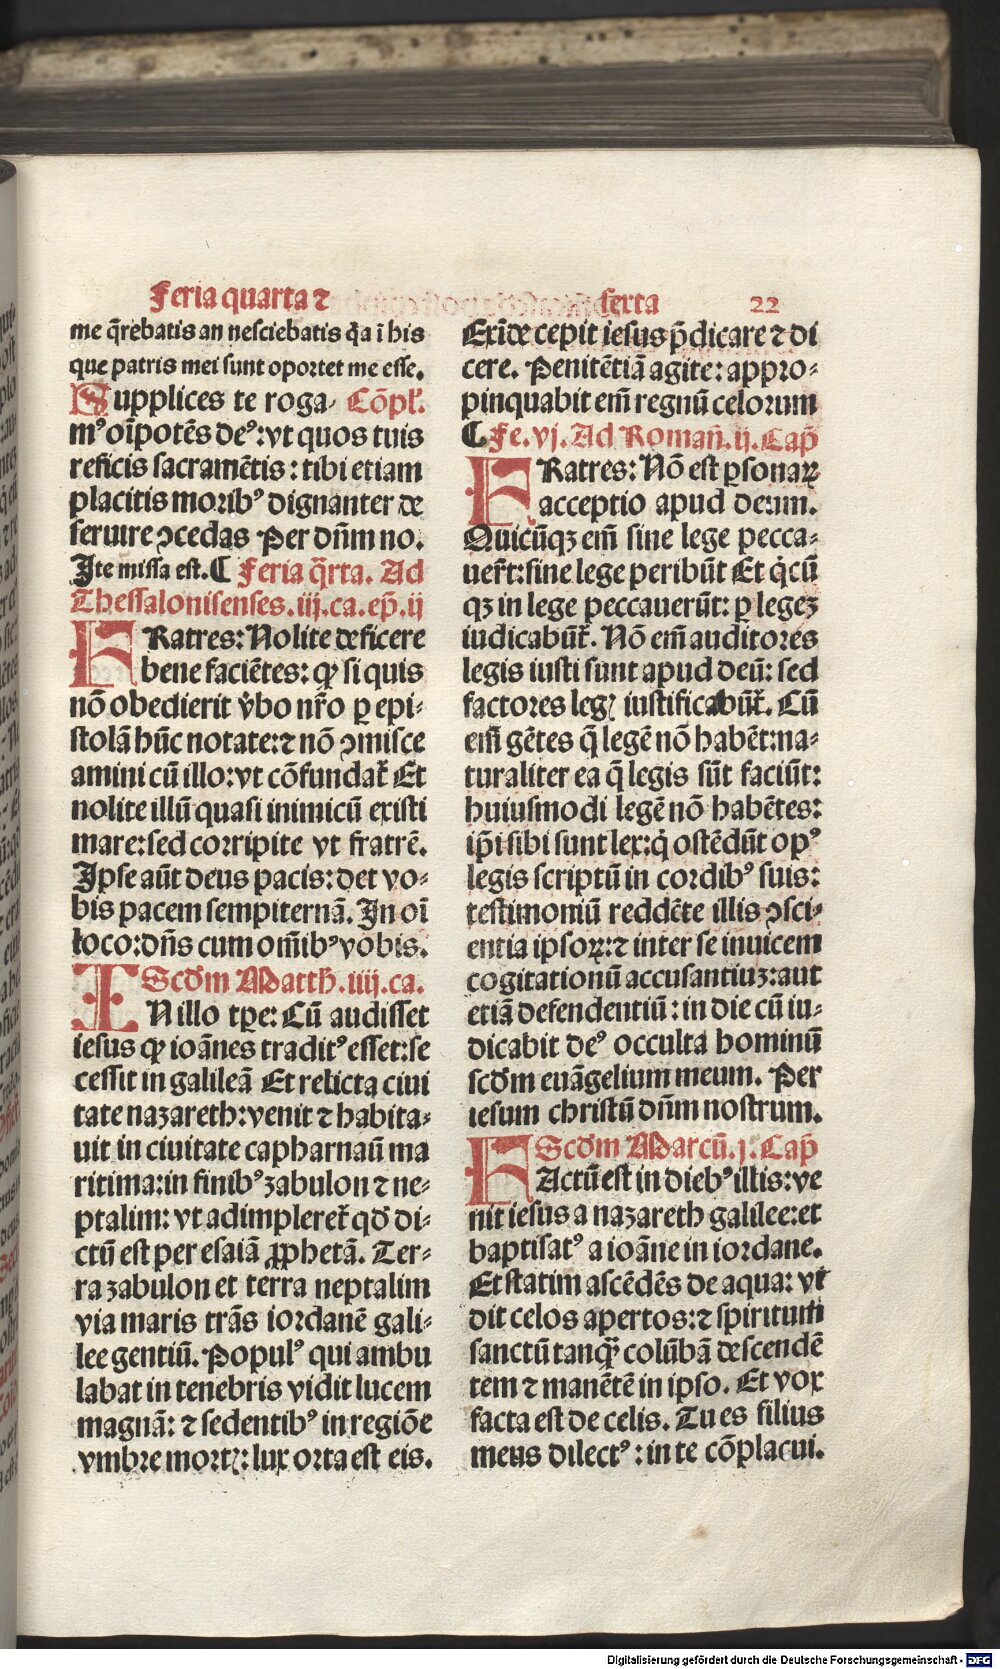 Feria quarta ⁊ sexta 22
me q̄rebatis an nesciebatis q̇a ī his
que patris mei sunt oportet me esse.
Supplices te roga⸗ Cōpl̄.
mꝰ oīpotēs deꝰ: vt quos tuis
reficis sacramētis: tibi etiam
placitis moribꝰ dignanter de
seruire ꝯcedas Per dn̄m no.
Ite missa est. C Feria q̄rta. Ad
Thessalonisenses. iij. ca. ep̄. ij
FRatres: Nolite deficere
bene faciētes: ꝙ si quis
nō obedierit v̄bo nr̄o ꝑ epi⸗
stolā hūc notate: ⁊ nō ꝯmisce
amini cū illo: vt cōfundat᷑ Et
nolite illū quasi inimicū existi
mare: sed corripite vt fratrē.
Ipse aūt deus pacis: det vo⸗
bis pacem sempiternā. In oī
loco: dn̄s cum om̄ibꝰ vobis.
Scd̄m Matth. iiij. ca.
IN illo tꝑe: Cū audisset
iesus ꝙ ioānes traditꝰ esset: se
cessit in galileā Et relicta ciui
tate nazareth: venit ⁊ habita⸗
uit in ciuitate capharnaū ma
ritima: in finibꝰ zabulon ⁊ ne⸗
ptalim: vt adimpleret᷑ qd̄ di⸗
ctū est per esaiā ꝓphetā. Ter⸗
ra zabulon et terra neptalim
via maris trās iordanē gali⸗
lee gentiū. Populꝰ qui ambu
labat in tenebris vidit lucem
magnā: ⁊ sedentibꝰ in regiōe
vmbre mortꝭ: lux orta est eis.
Exīde cepit iesus p̄dicare ⁊ di
cere. Penitētiā agite: appro⸗
pinquabit em̄ regnū celorum
C Fe. vj. Ad Roman̄. ij. Cap̄
FRatres: Nō est ꝑsonaꝝ
acceptio apud deum.
Quicūqꝫ em̄ sine lege pecca⸗
uer̄t: sine lege peribūt Et q̇cū
qꝫ in lege peccauerūt: ꝑ legeꝫ
iudicabūt᷑. Nō em̄ auditores
legis iusti sunt apud deū: sed
factores legꝭ iustificabūt᷑. Cū
eīm gētes q̄ legē nō habēt: na⸗
turaliter ea q̄ legis sūt faciūt:
huiusmodi legē nō habētes:
ip̄i sibi sunt lex: q̇ ostēdūt opꝰ
legis scriptū in cordibꝰ suis:
testimoniū reddēte illis ꝯsci⸗
entia ipsoꝝ: ⁊ inter se inuicem
cogitationū accusantiuꝫ: aut
etiā defendentiū: in die cū iu⸗
dicabit deꝰ occulta hominū
scd̄m euāgelium meum. Per
iesum christū dn̄m nostrum.
Scd̄m Marcū. j. Cap̄
FActū est in diebꝰ illis: ve
nit iesus a nazareth galilee: et
baptisatꝰ a ioāne in iordane.
Et statim ascēdēs de aqua: vi
dit celos apertos: ⁊ spiritum
sanctū tanqꝫ̄ colūbā descendē
tem ⁊ manētē in ipso. Et vox
facta est de celis. Tu es filius
meus dilectꝰ: in te cōplacui.
Digitalisierung gefördert durch die Deutsche Forschungsgemeinschaft - DFG